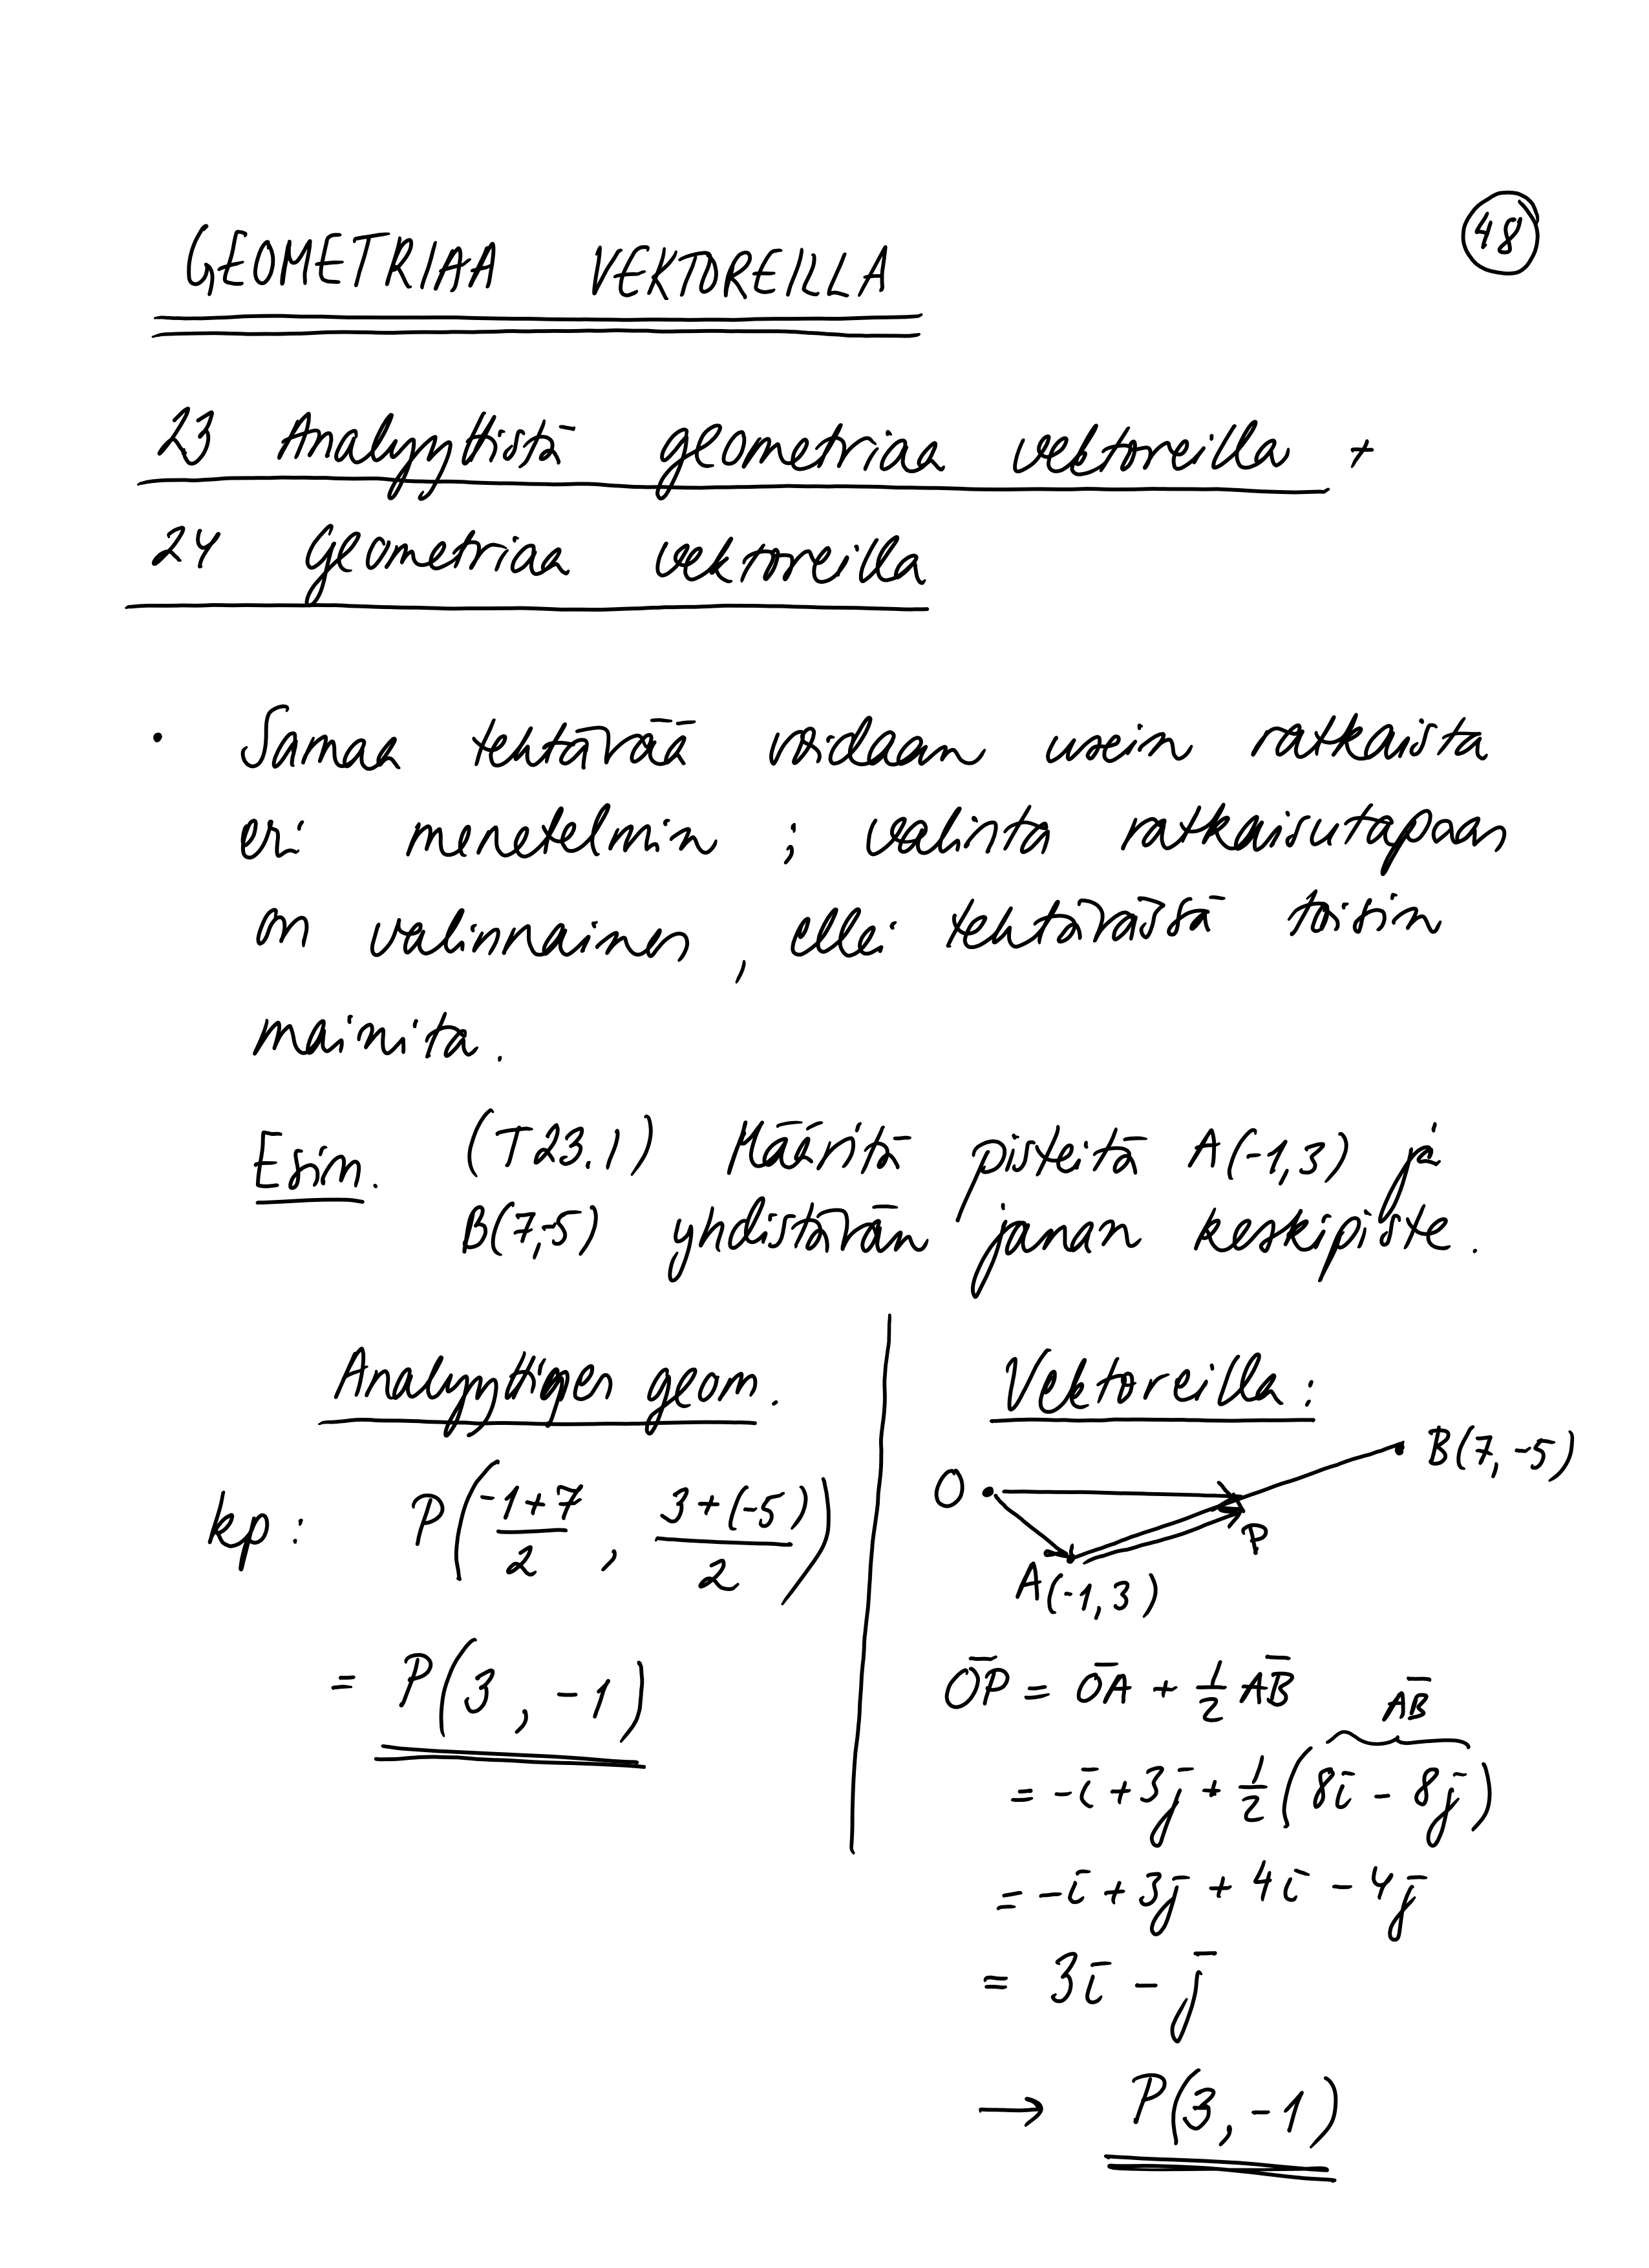 48
GEOMETRIAA VEKTOREILLA
23 Analyyttistä geometriaa vektoreilla +
24 Geometriaa vektoreilla
• Samaa tehtävää voidaan usein ratkaista
eri menetelmin ; valinta ratkaisutapaan
on valinnainen , ellei tehtävässä toisin
mainita.
Esim. (T23.1) Määritä pisteitä A(-1,3) ja
B(7,-5) yhdistävän janan keskipiste.
Analyyttinen geom.
kp: P(-1+7/2 , 3+(-5)/2)
= P(3 , -1)
Vektoreilla:
B(7,-5)
O
P
A(-1,3)
O̅P̅ = O̅A̅ + 1/2 A̅B̅
A̅B̅
= -i̅ + 3j̅ + 1/2 (8i̅ - 8j̅)
= -i̅ + 3j̅ + 4i̅ - 4j̅
= 3i̅ - j̅
→ P(3,-1)